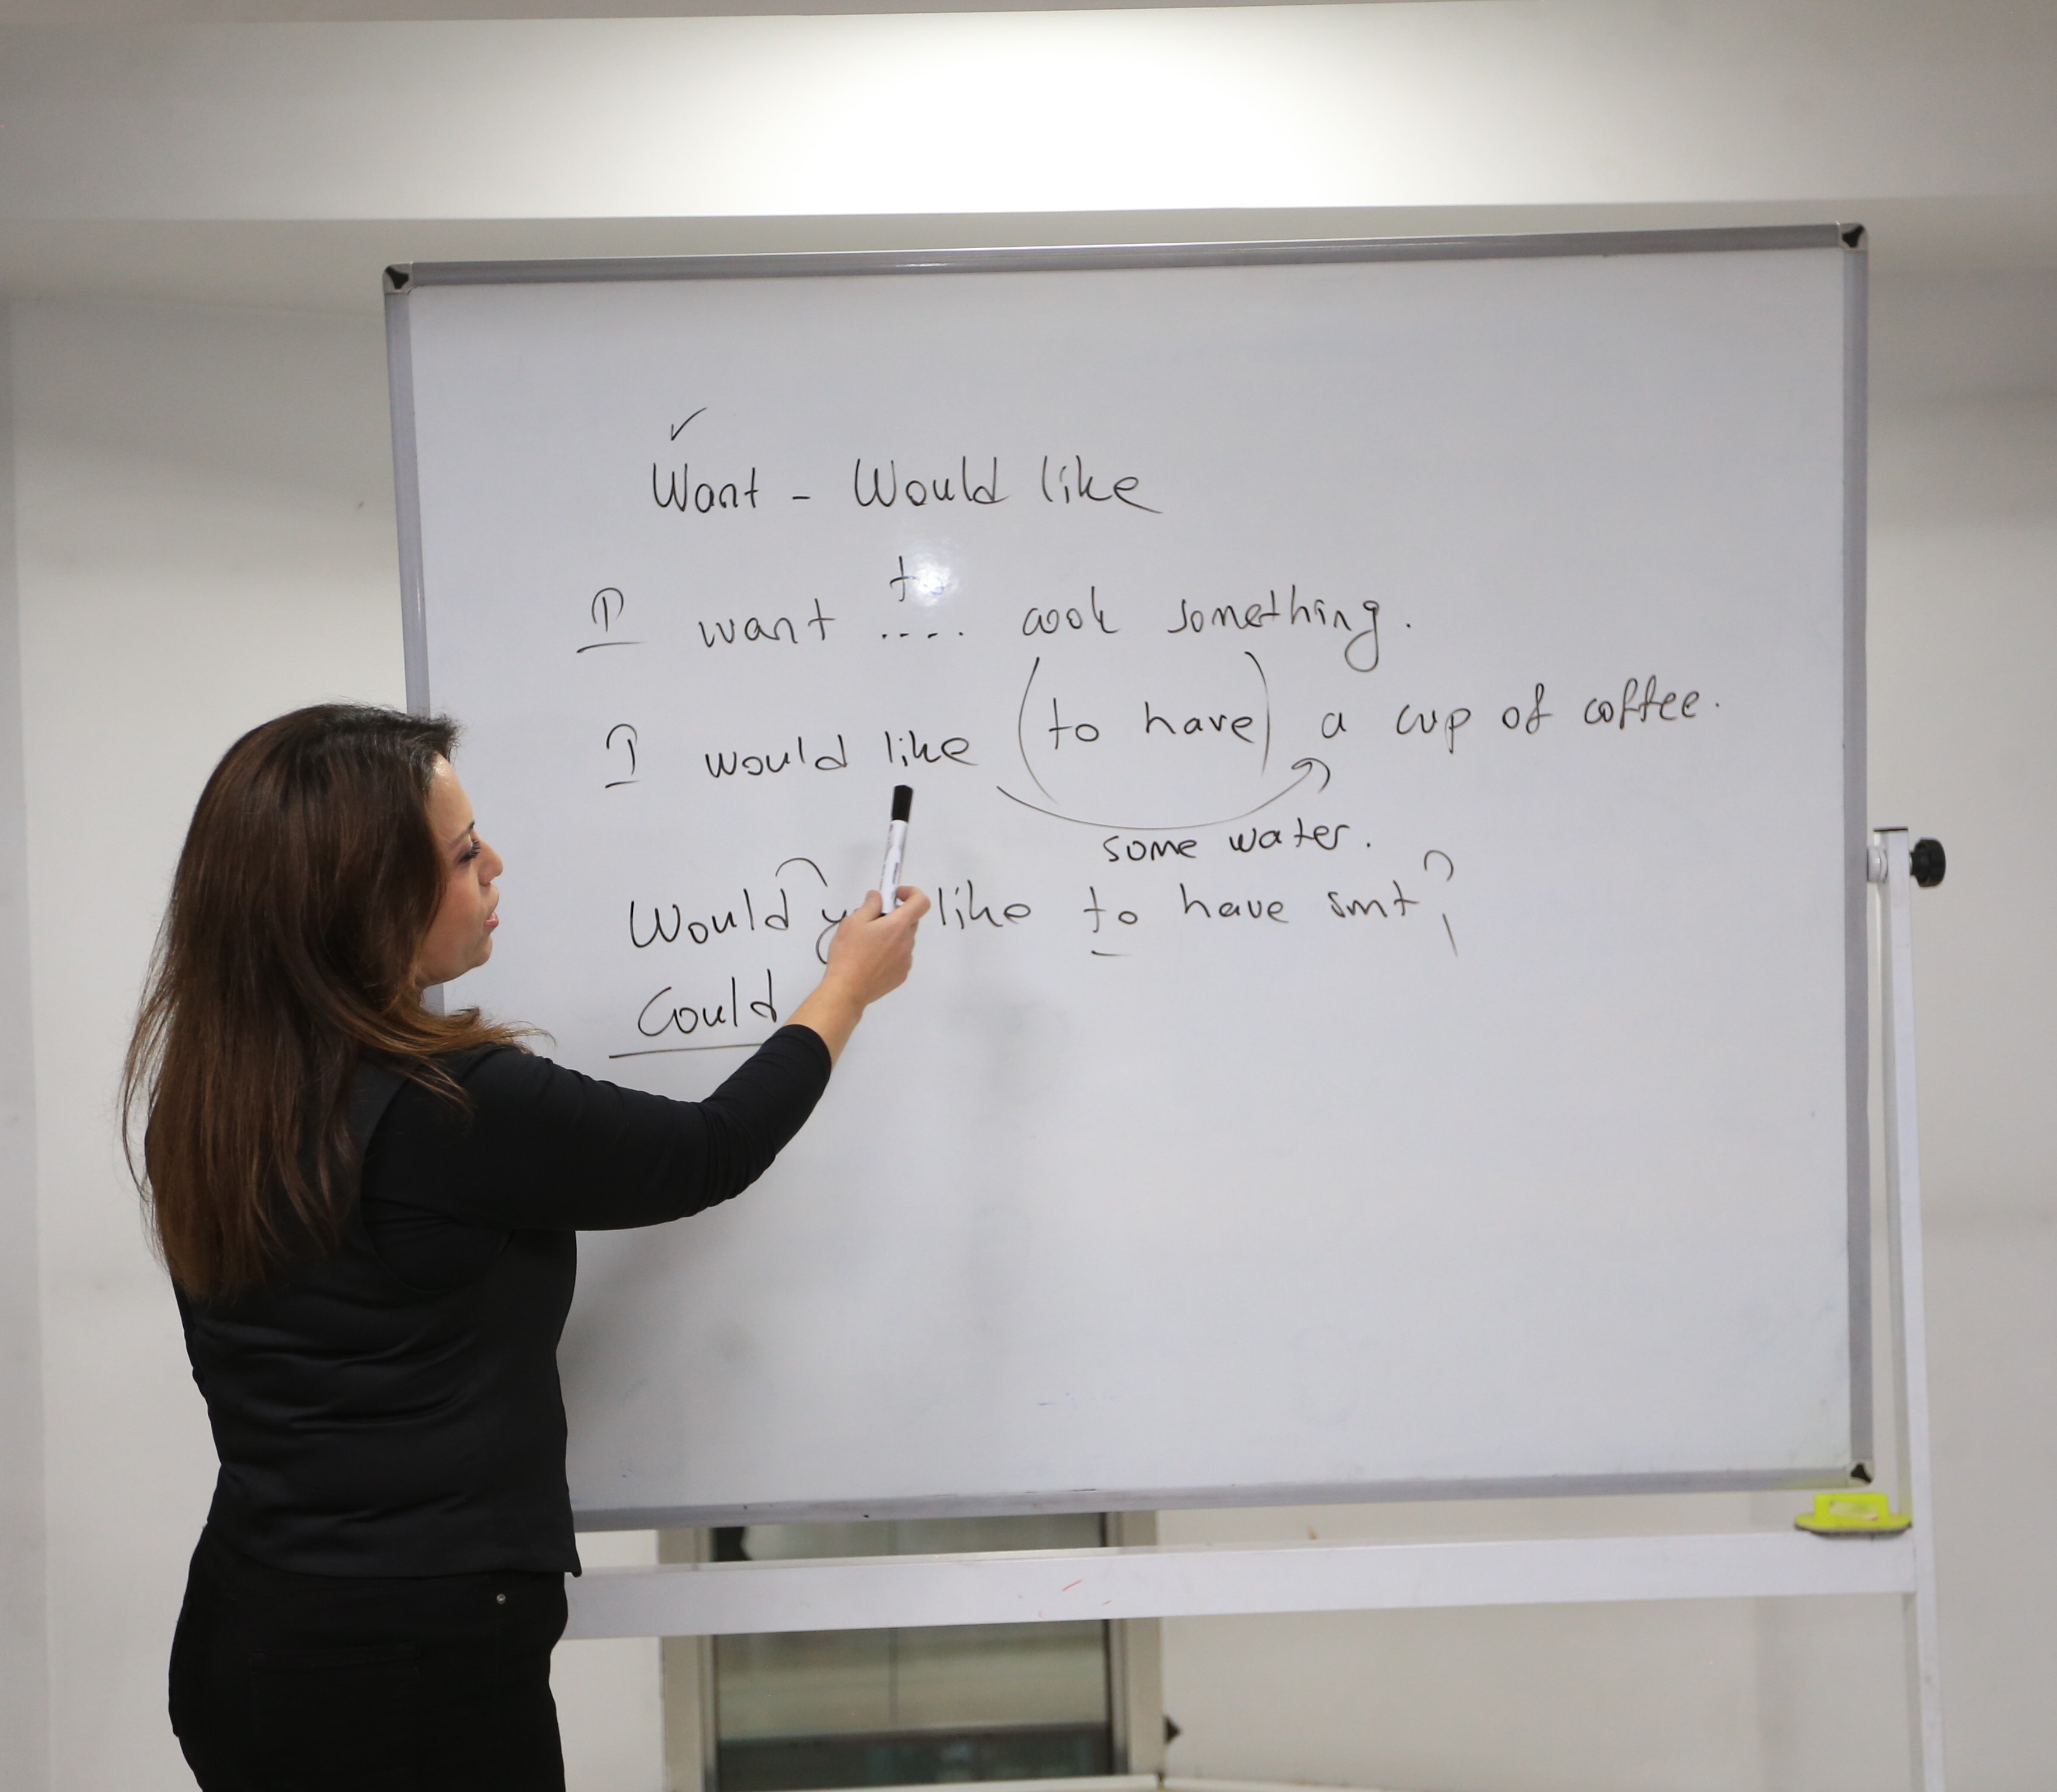 Want - Would like
to
I want .... cook something.
I would like (to have) a cup of coffee.
some water.
Would like to have smt?
Could